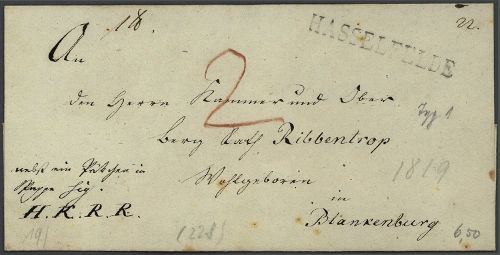 18.
HASSELFELDE
22.
An
2
den Herrn Kammer und Ober
Typ 1
Berg Rath Ribbentrop
1819
nebst ein Pätchen in
Wohlgeboren
H. K. R. R.
in
Blankenburg
19)
(228)
6,50